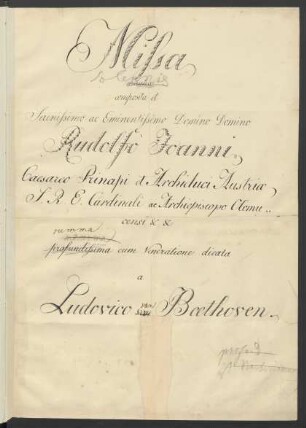 Missa
solemnis
composita et
Serenissimo ac Eminentissimo Domino Domino
Rudolfo Joanni
Caesareo Principi et Archiduci Austriae
S. R. E. Cardinali ac Archiepiscopo Olomu
censi & &
summa
profundissima cum Veneratione dicata
a
Ludovico van Beethoven.